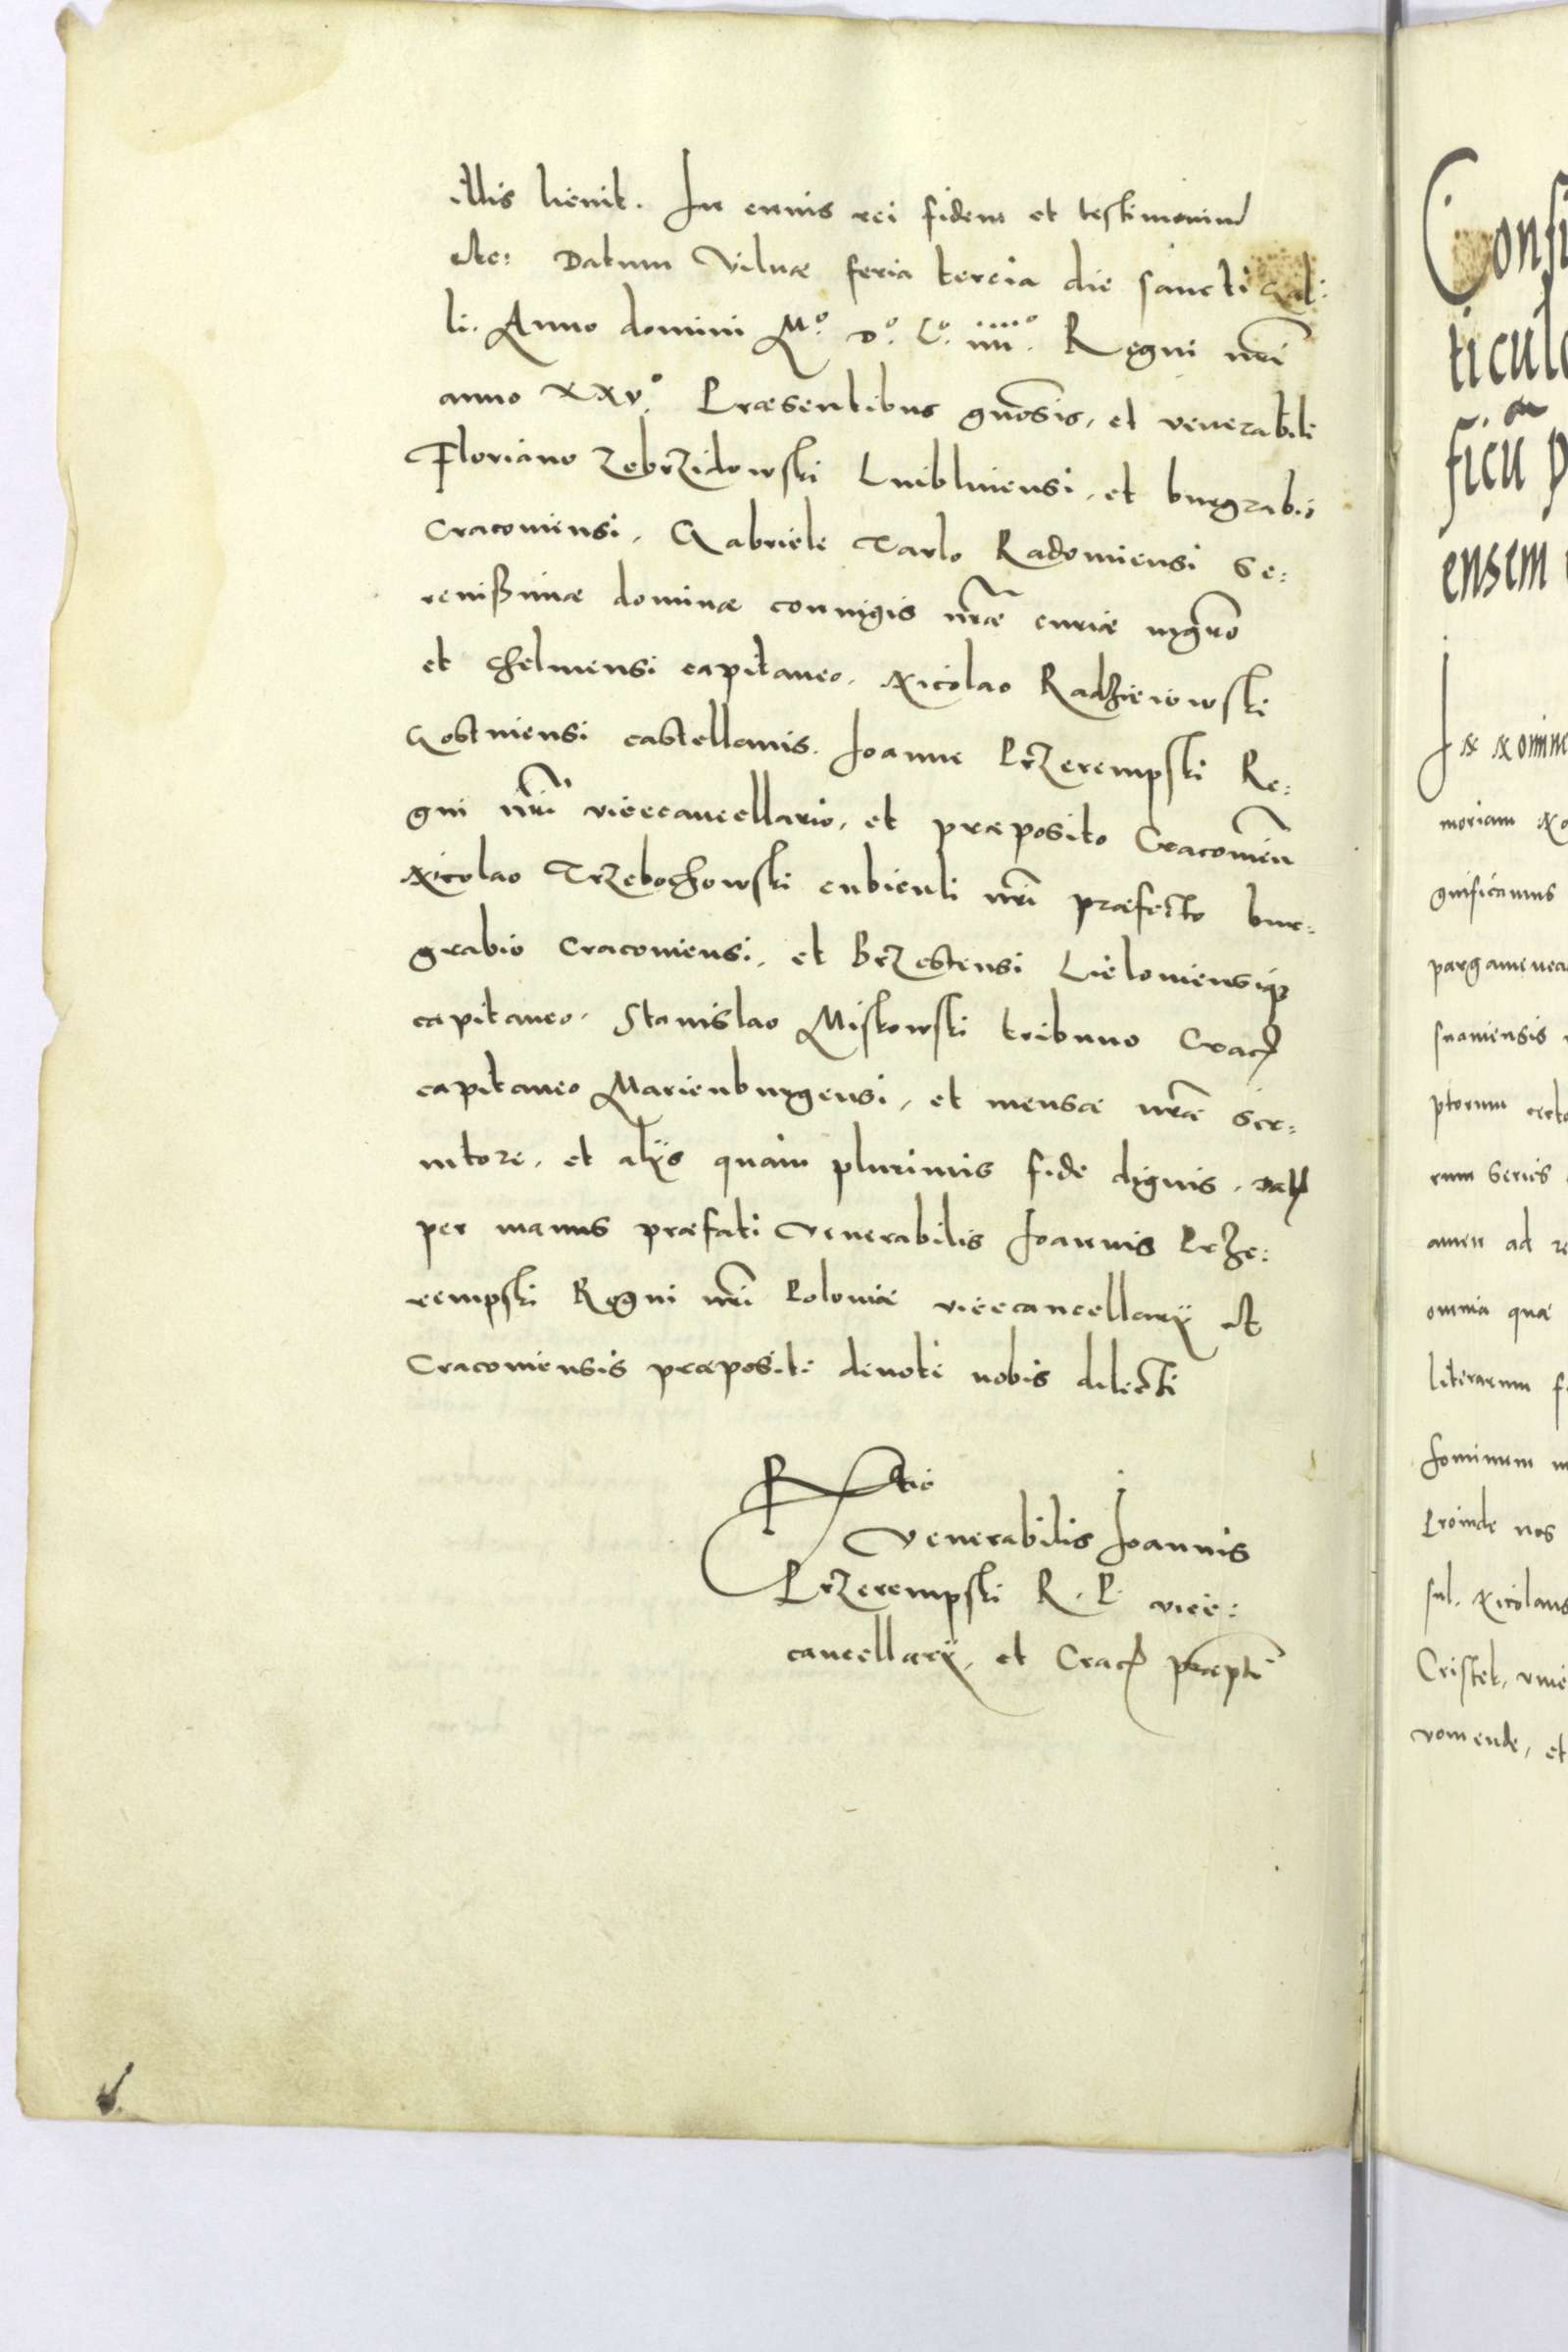 illis lienit. In cuius rei fidem et testimonium
etc: Datum Vilnæ feria tercia die sancti Gal:
li. Anno domini M.º D.º L.º iiii.º Regni nr̃i
anno XXV.º Præsentibus gnosis, et venerabili
Floriano Zebrzidowski Luiblinensi, et burgrabio
Cracoviensi, Gabriele Tarlo Radomiensi Se:
renissimæ dominæ coniugis nr̃æ curiæ mgr̃o
et Chelmensi capitaneo, Nicolao Radzieiowski
Gostinensi castellanis. Joanne Przerempski Re:
gni nr̃i vicecancellario, et præposito Cracovien̄
Nicolao Trzebochowski cubiculi nr̃i præfecto bur:
grabio Cracoviensi, et Brzestensi Lieloniensiq3
capitaneo, Stanislao Miskowski tribuno Crac̄
capitaneo Marienburgensi, et mensæ nr̃æ scr:
utore, et alijs quàm plurimis fide dignis. Dat̄
per manus præfati Venerabilis Joannis Prze:
rempski Regni nr̃i Poloniæ vicecancellarij et
Cracoviensis præpositi devoti nobis dilecti
R̃tio
Venerabilis Joannis
Przerempski R. P. vice:
cancellarij, et Crac̄ præpti
Confi
ticulo
ficū p
ensem
In nomine
moriam
gnificamus
pargamenea
snaniensis
ptorum
rum seriés
amen ad re
omnia quæ
literarum
hominum
Proinde nos
sul. Nicolaus
Cristek,
et